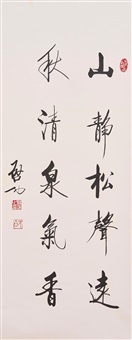 山静松聲遠
秋清泉氣香
啓功